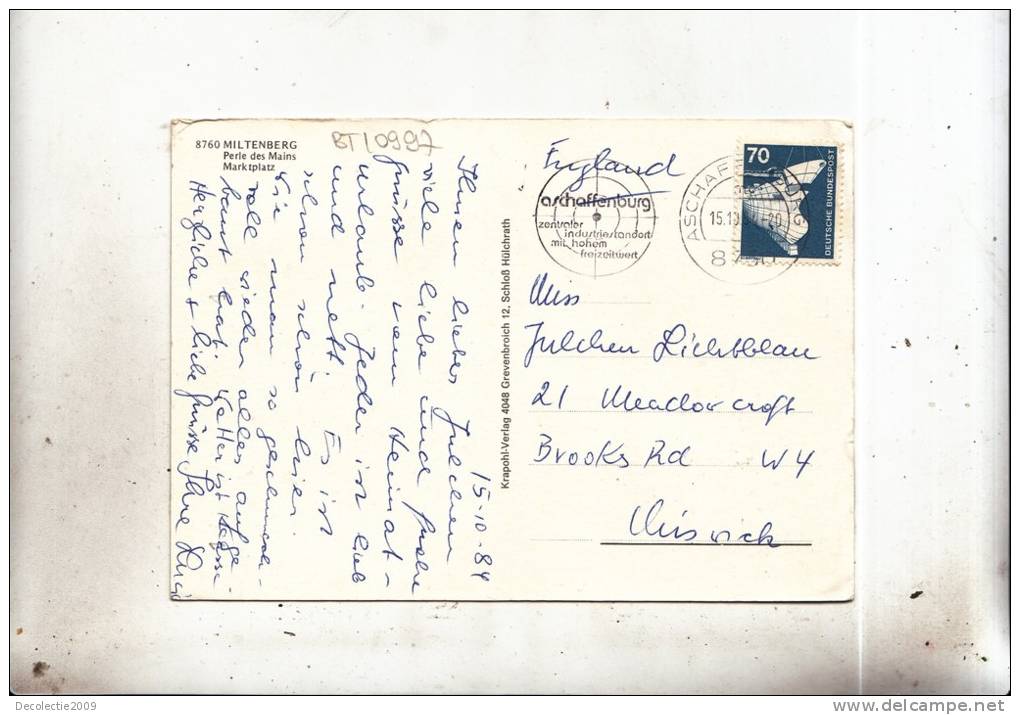 8760 MILTENBERG
Perle des Mains
Marktplatz
BT10997
15-10-84
Ihnen liebes Julchen
viele liebe und frohe
Grüsse vom Heimat-
urlaub. Jeder ist lieb
und nett. Es ist
schon schön hier.
Wie man so geschmack-
voll wieder alles auf ge-
baut hat. Wetter ist
Herzliche + liebe Grüsse Ihre
Krapohl-Verlag 4048 Grevenbroich 12, Schloß Hülchrath
England
aschaffenburg
zentraler
industriestandort
mit hohem
freizeitwert
ASCHAFFENBURG
15.10
70
DEUTSCHE BUNDESPOST
Miss
Julchen Lichtblau
21 Meadowcroft
Brooks Rd W4
Chiswick
Decolectie2009